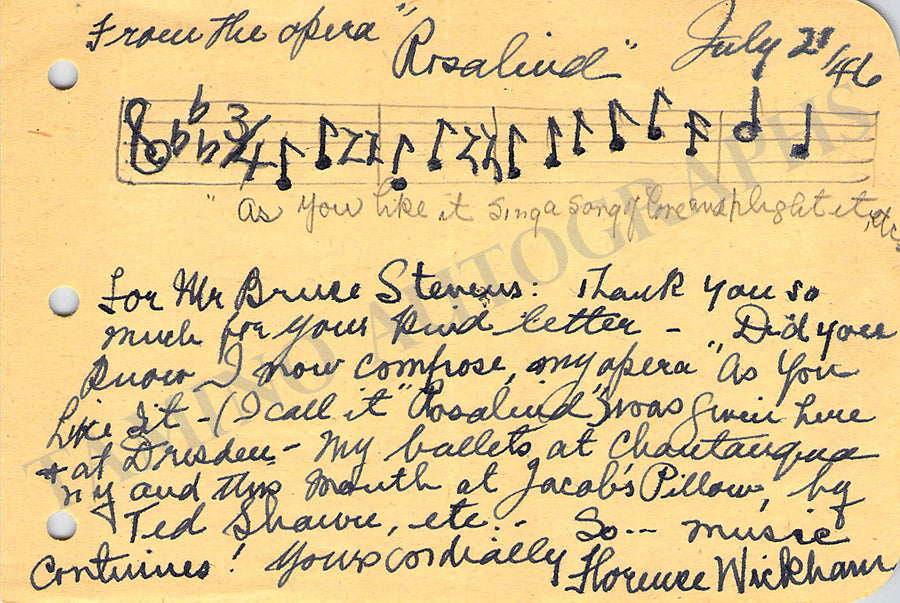 From the opera "Rosalind" July 28/46
3/4
"As you like it sing a song of love and plight it, etc.
For Mr Bruce Stevens: Thank you so
much for your kind letter - Did you
know I now compose, my opera "As You
Like It - (I call it "Rosalind") was given here
+ at Dresden - My ballets at Chautauqua
NY and this month at Jacob's Pillow, by
Ted Shawn, etc.. So -- music
continues! Yours cordially
Florence Wickham
TAMINO AUTOGRAPHS